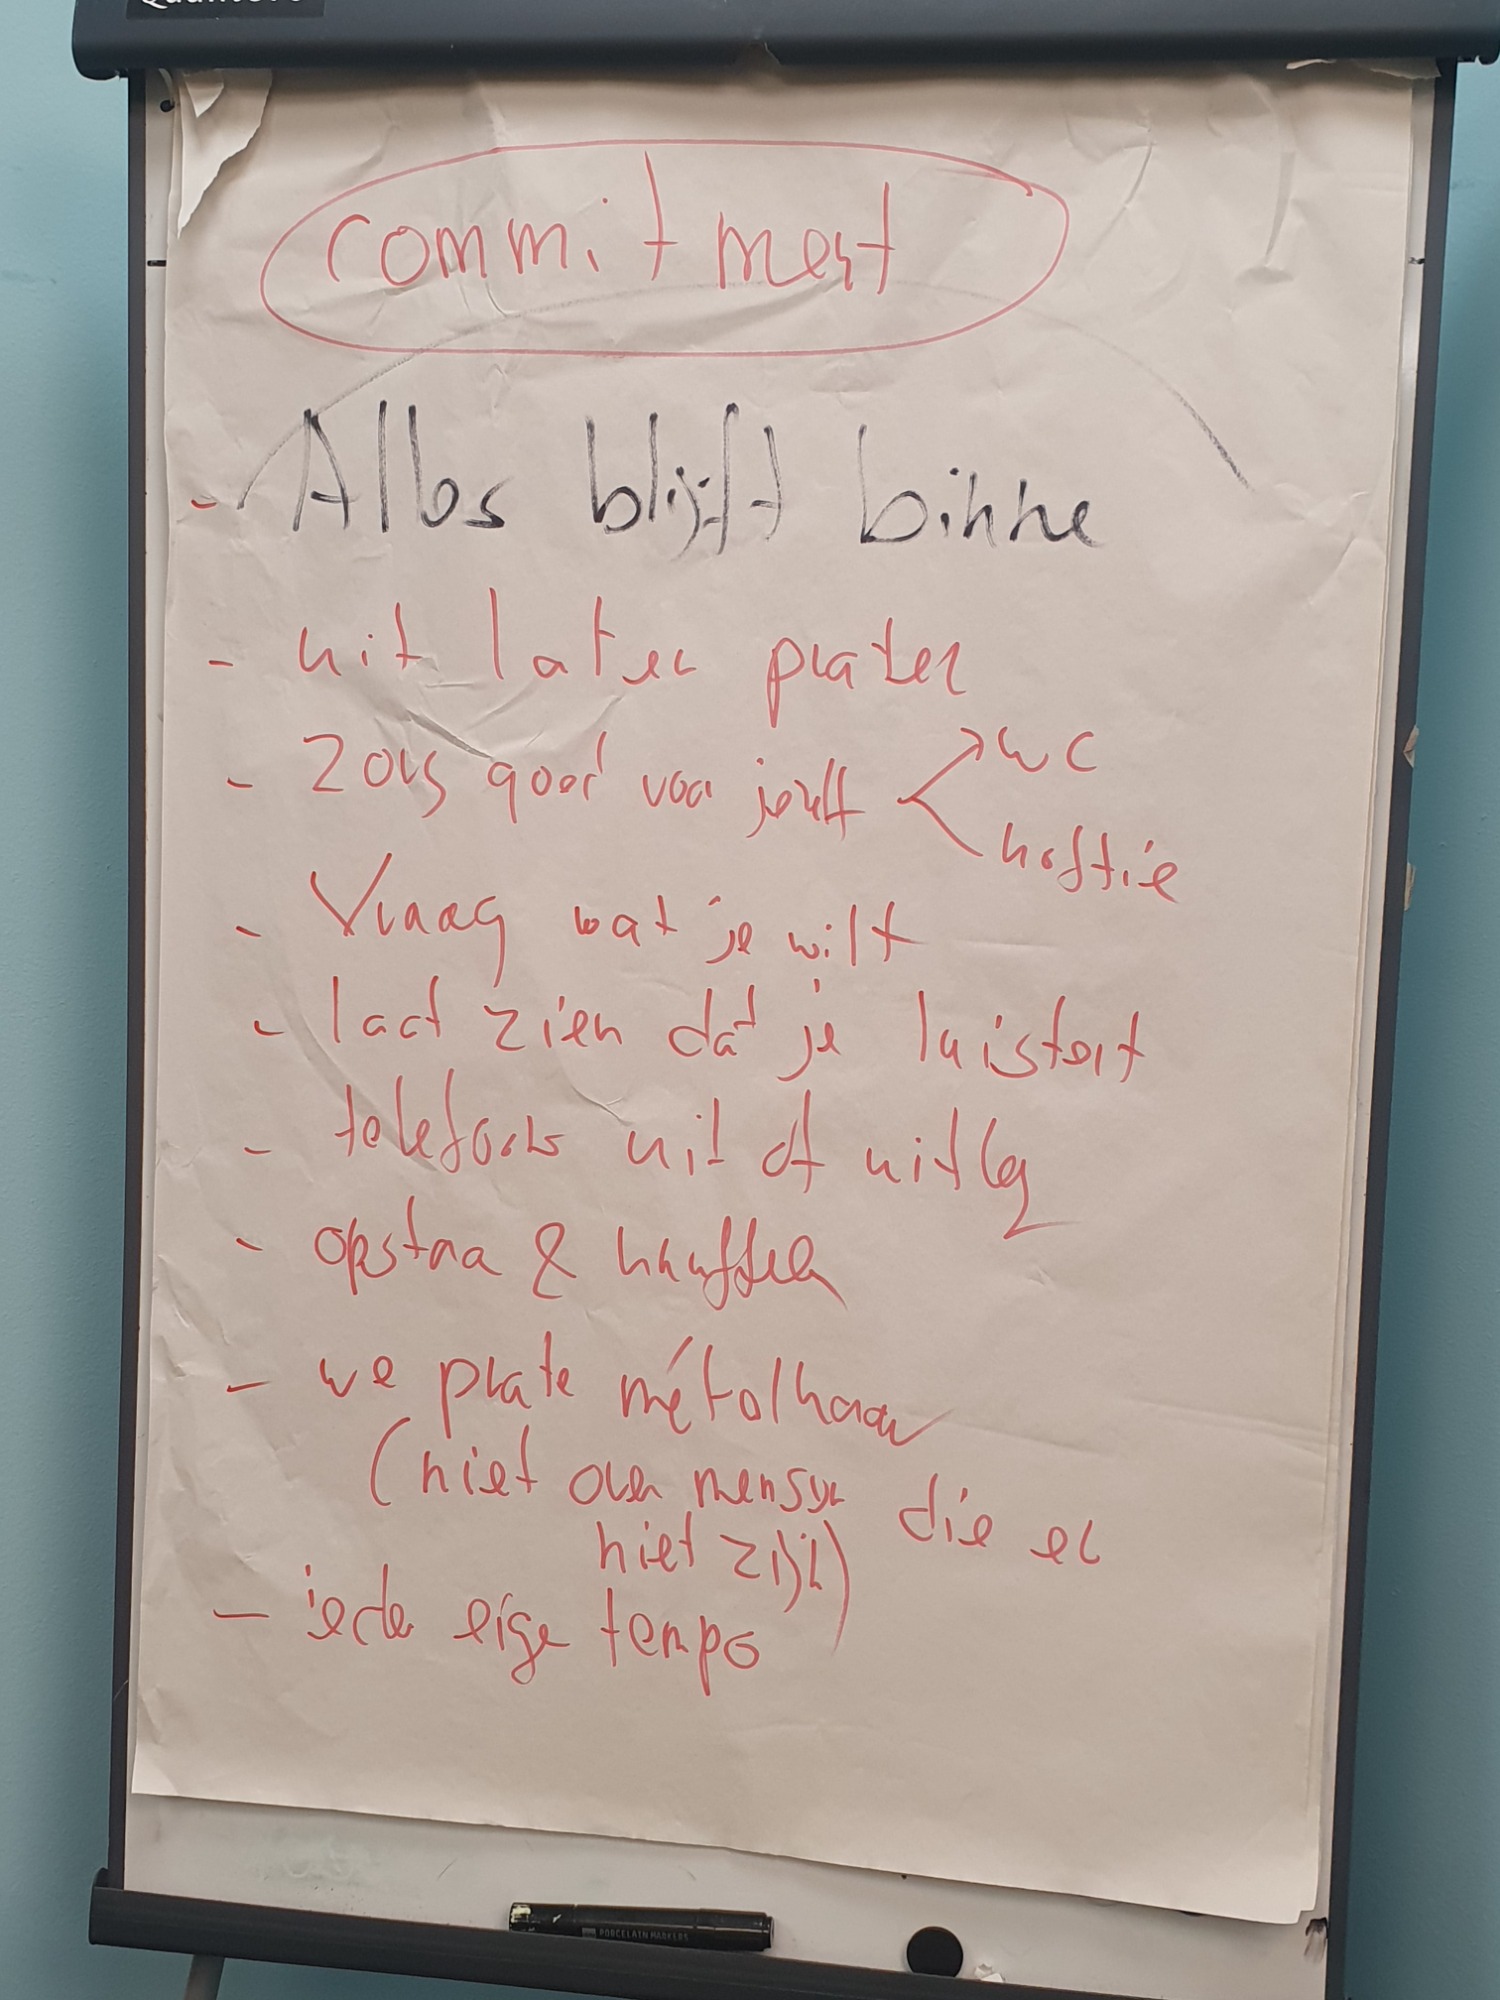 commitment
- Alles blijft binne
- uit laten praten
- Zorg goed voor jezelf
WC
koffie
- Vraag wat je wilt
- laat zien dat je luistert
- telefoons uit of uitleg
- opstaa & knuffelen
- we prate mét elkaar
(niet over mensen die er
niet zijn)
- ieder eige tempo
PORCELAIN MARKERS